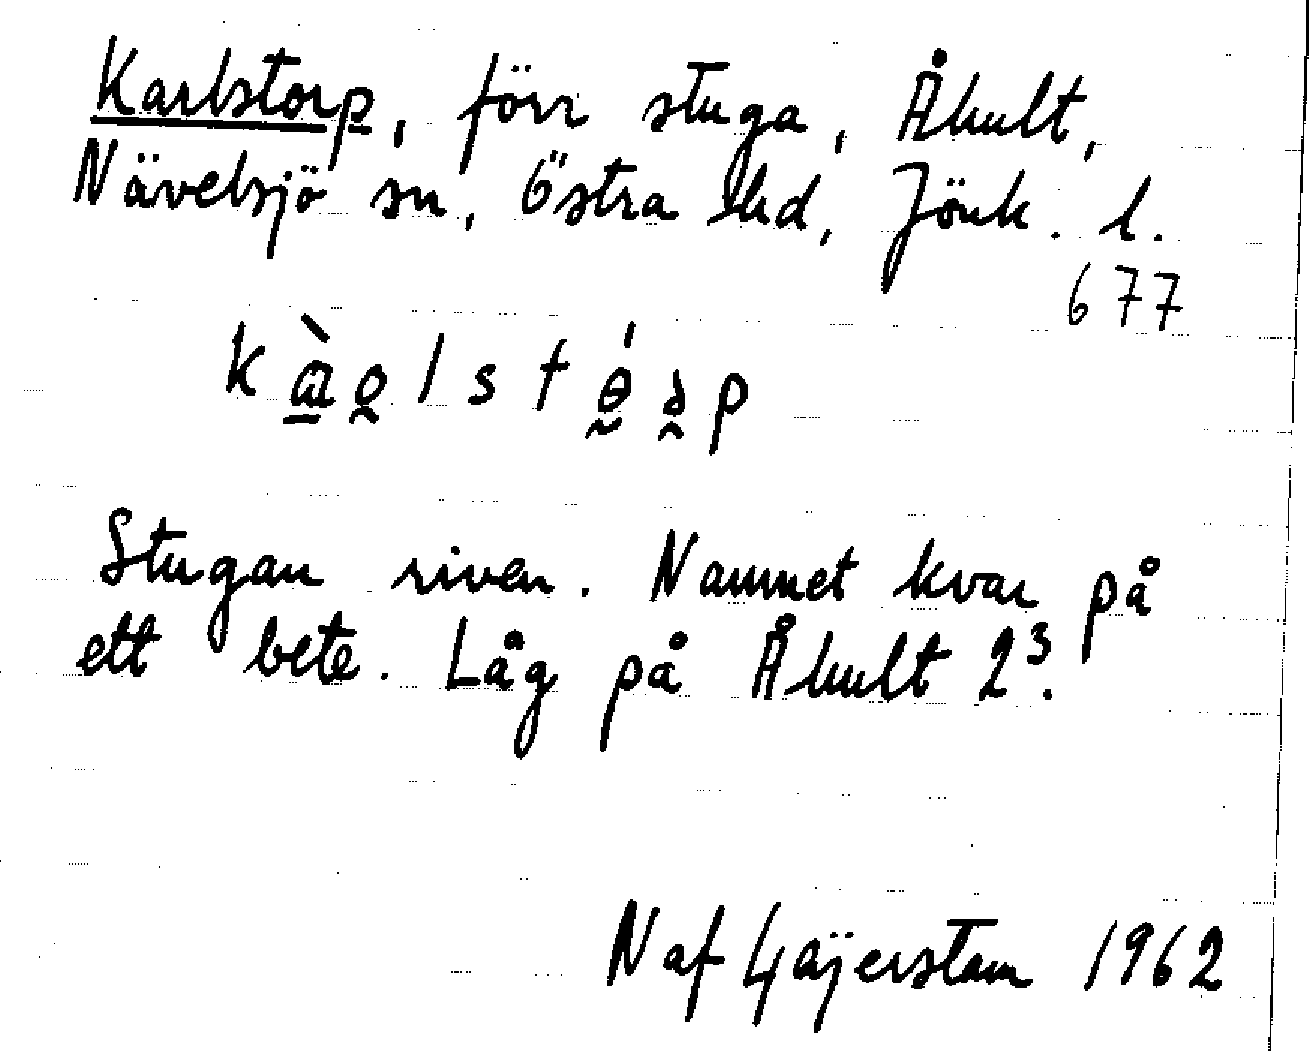 Karlstorp, förr stuga, Åhult,
Nävelsjö sn, Östra hd, Jönk. l.
677
Stugan riven. Namnet kvar på
ett bete. Låg på Åhult 2³.
Naf Gäijerstam 1962